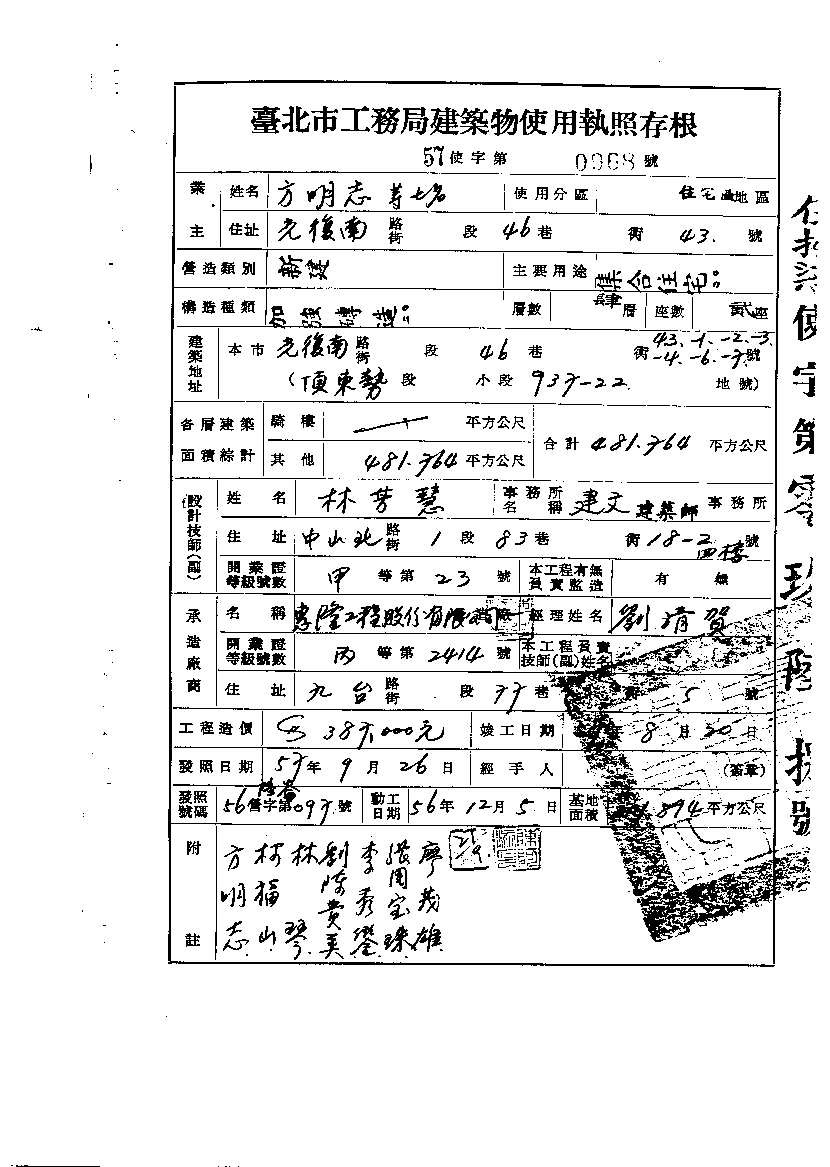 臺北市工務局建築物使用執照存根
57使字第 0968 號
業主 姓名 方明志等七名 使用分區 住宅區地區
住址 光復南 路街 段 46巷 衖 43. 號
營造類別 新建 主要用途 集合住宅
構造種類 加強磚造 層數 肆層 座數 貳座
建築地址 本市 光復南 路街 段 46巷 衖 43.-1.-2.-3.-4.-6.-7.號
(頂東勢 段 小段 937-22 地號)
各層建築面積綜計 騎樓 平方公尺 合計 481.764 平方公尺
其他 481.764 平方公尺
設計技師(副) 姓名 林芳慧 事務所名稱 建文建築師 事務所
住址 中山北 路街 1段 83巷 衖 18-2 號 四樓
開業證等級號數 甲 等第 23 號 本工程有無員實監造 有 無
承造廠商 名稱 工程股份有限公司 經理姓名 劉清賀
開業證等級號數 丙 等第 2414 號 本工程員責技師(副)姓名
住址 九台 路街 段 77巷 衖 5 號
工程造價 387,000元 竣工日期 年 8月30日
發照日期 57年9月26日 經手人 (簽章)
發照號碼 56營字第097號 動工日期 56年12月5日 基地面積 894平方公尺
附註
方明志
柯福山
林琴
劉陳貴美
李秀鑾
張周宝珠
廖茂雄
使字第零玖陸捌號